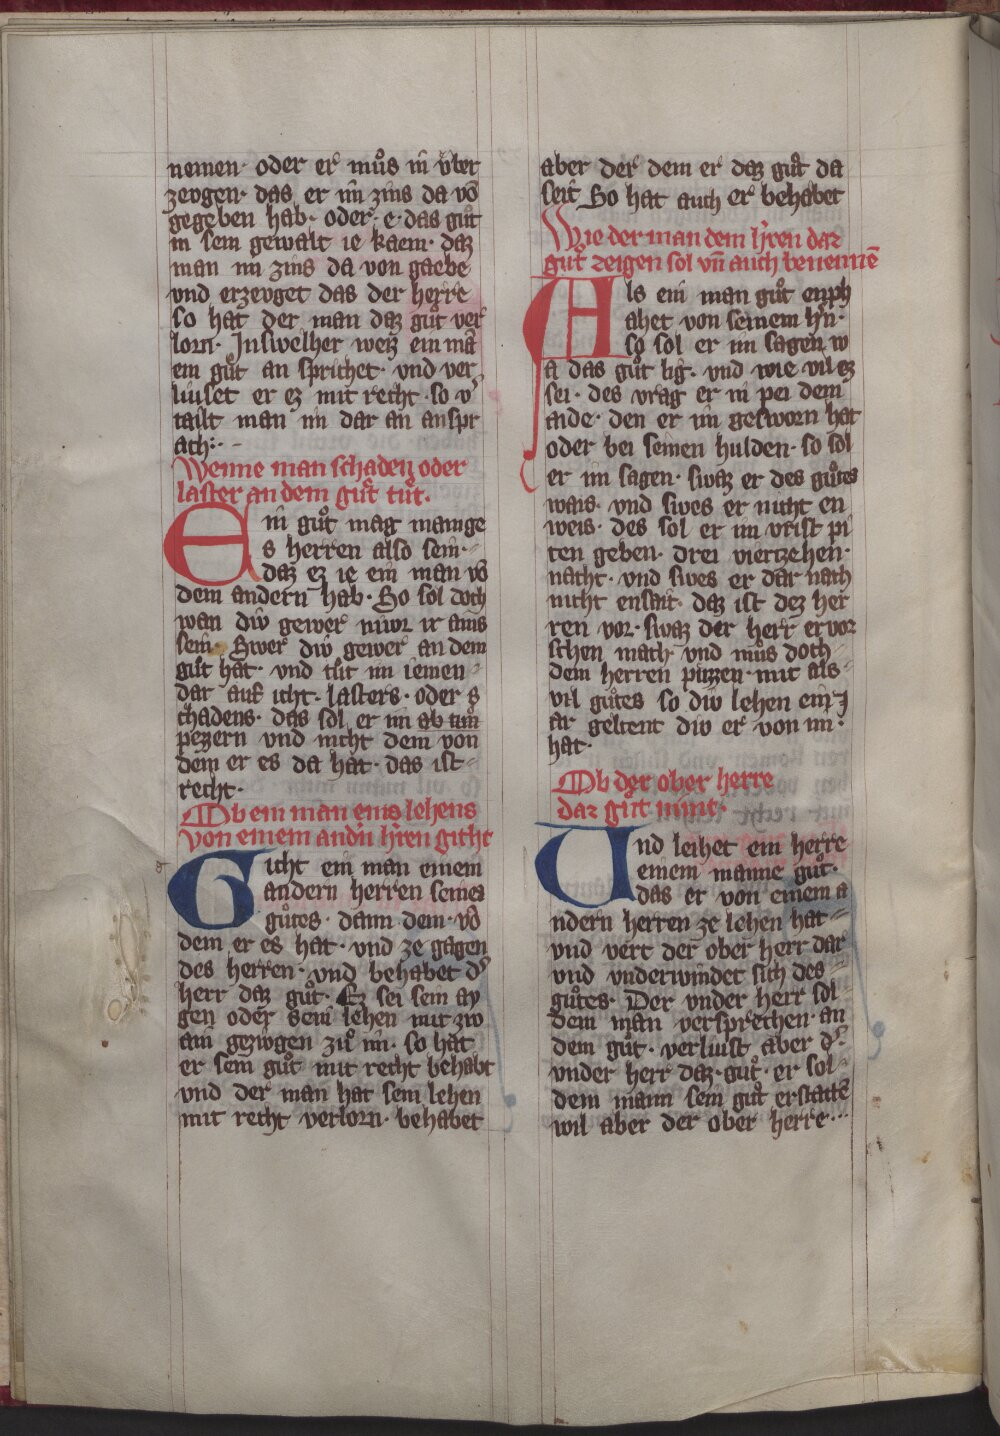 nemen· oder er muͦs in vͤber
zevgen· das er im zins da vō
gegeben hab· oder· e· das guͦt
in sein gewalt ie kaem· daz
man im zins da von gaebe
vnd erzevget das der herre
so hat der man daz guͦt ver
lorn· Inswelher weiz ein mā
ein guͦt an sprichet· vnd ver
liuset er ez mit recht· so v̾
tailt man im dar an anspr
ach:·-
Wenne man schaden oder
laster an dem guͦt tuͦt.
Ein guͦt mag manige
s herren also sein·=
daz ez ie ein man vō
dem andern hab· So sol doch
wan diw gewer niwr ir ains
sein· Swer diw gewer an dem
guͦt hat· vnd tuͦt im iemen=
dar auf icht· lasters· oder s
chadens· das sol er im ab tuͦn
pezern vnd nicht dem von
dem er es da hat· das ist=
recht·
Ob ein man eins lehens
von einem andn̄ hr̄en gicht
Gicht ein man einem
andern herren seines
guͦtes· dann dem· vō
dem er es hat· vnd ze gagen
des herren· vnd behabet d̾
herr daz guͦt· Ez sei sein ay
gen oder sein lehen mit zw
ain gezivgen zuͦ im· so hat
er sein guͦt mit recht behabt
vnd der man hat sein lehen
mit recht verlorn· behabet
aber der dem er daz guͦt da
seit So hat auch er behabet
Wie der man dem hr̄en daz
guͦt zeigen sol vn̄ auch benennē
Als ein man guͦt enph
ahet von seinem hr̄n·
so sol er im sagen w
a das guͦt lig· vnd wie vil ez
sei· des vrag er in pei dem
aide· den er im gesworn hat
oder bei seinen hulden· so sol
er im sagen· swaz er des guͦtes
wais· vnd swes er nicht en
weis· des sol er im vrist pi
ten geben· drei viertzehen·
nacht· vnd swes er dar nach
nicht ensait· daz ist dez her
ren vor· swaz der herr ervor
schen mach· vnd muͦs doch=
dem herren puͤzzen· mit als=
vil guͦtes so diw lehen ein J
ar geltent diw er von im·
hat·
Ob der ober herre
daz guͦt nimt·
Und leihet ein herre
einem manne guͦt·
das er von einem a
ndern herren ze lehen hat=
vnd vert der ober herr dar
vnd vnderwindet sich des=
guͦtes· Der vnder herr sol
dem man versprechen· an
dem guͦt· verliust aber d̾
vnder herr daz· guͦt· er sol=
dem mann sein guͦt erstattē
wil aber der ober herre···